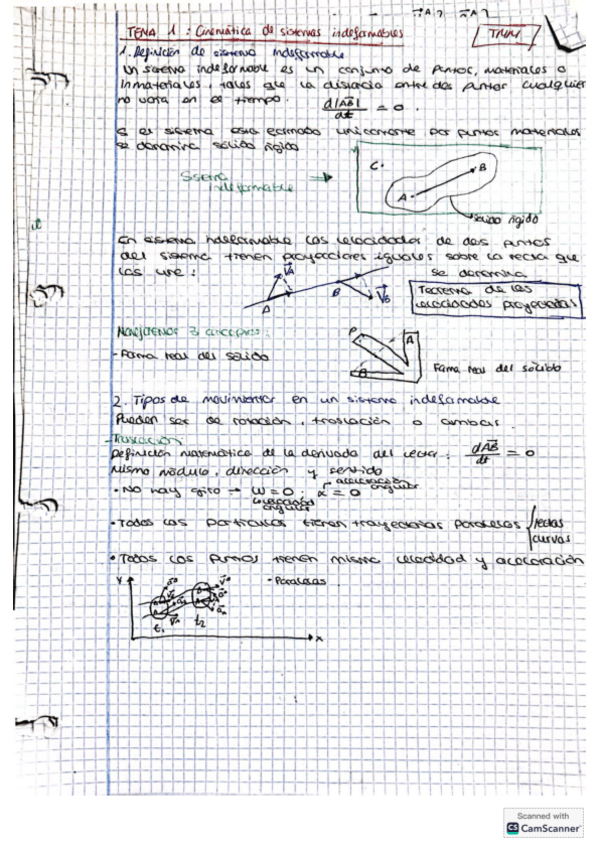 TEMA 1 : Cinemática de sistemas indeformables
TMM
1. Definición de sistema indeformable
Un sistema indeformable es un conjunto de puntos, materiales o
inmateriales, tales que la distancia entre dos puntos cualquier
no varía en el tiempo. d|AB|/dt = 0.
Si el sistema está formado únicamente por puntos materiales
se denomina sólido rígido
Sistema indeformable
C.
A
B
sólido rígido
En sistema indeformable las velocidades de dos puntos
del sistema tienen proyecciones iguales sobre la recta que
las une :
se denomina
Teorema de las
velocidades proyectadas
A
VA
B
VB
Manejaremos 3 conceptos:
- Forma real del sólido
P
A
B
Forma real del sólido
2. Tipos de movimientos en un sistema indeformable
Pueden ser de rotación, traslación o ambas.
- Traslación
Definición matemática de la derivada del vector: dAB/dt = 0
Mismo módulo, dirección y sentido
aceleración angular
• No hay giro → ω = 0 ; α = 0
velocidad angular
• Todas las partículas tienen trayectorias paralelas { rectas
curvas
• Todos los puntos tienen misma velocidad y aceleración
- Paralelas
Y
t1
t2
X
Scanned with
CS CamScanner